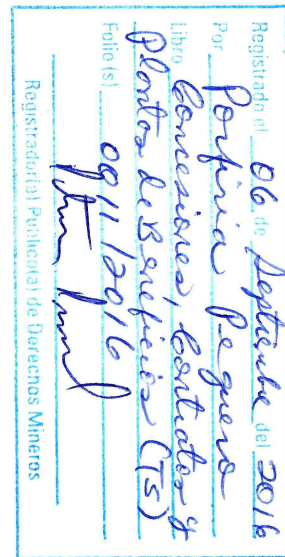 Registrado el 06 de Septiembre del 2016
Por Porfiria Peguero
Libro Concesiones, Contratos y
Plantas de Beneficios (TS)
Folio(s) 0011/2016
Registrador(a) Público(a) de Derechos Mineros